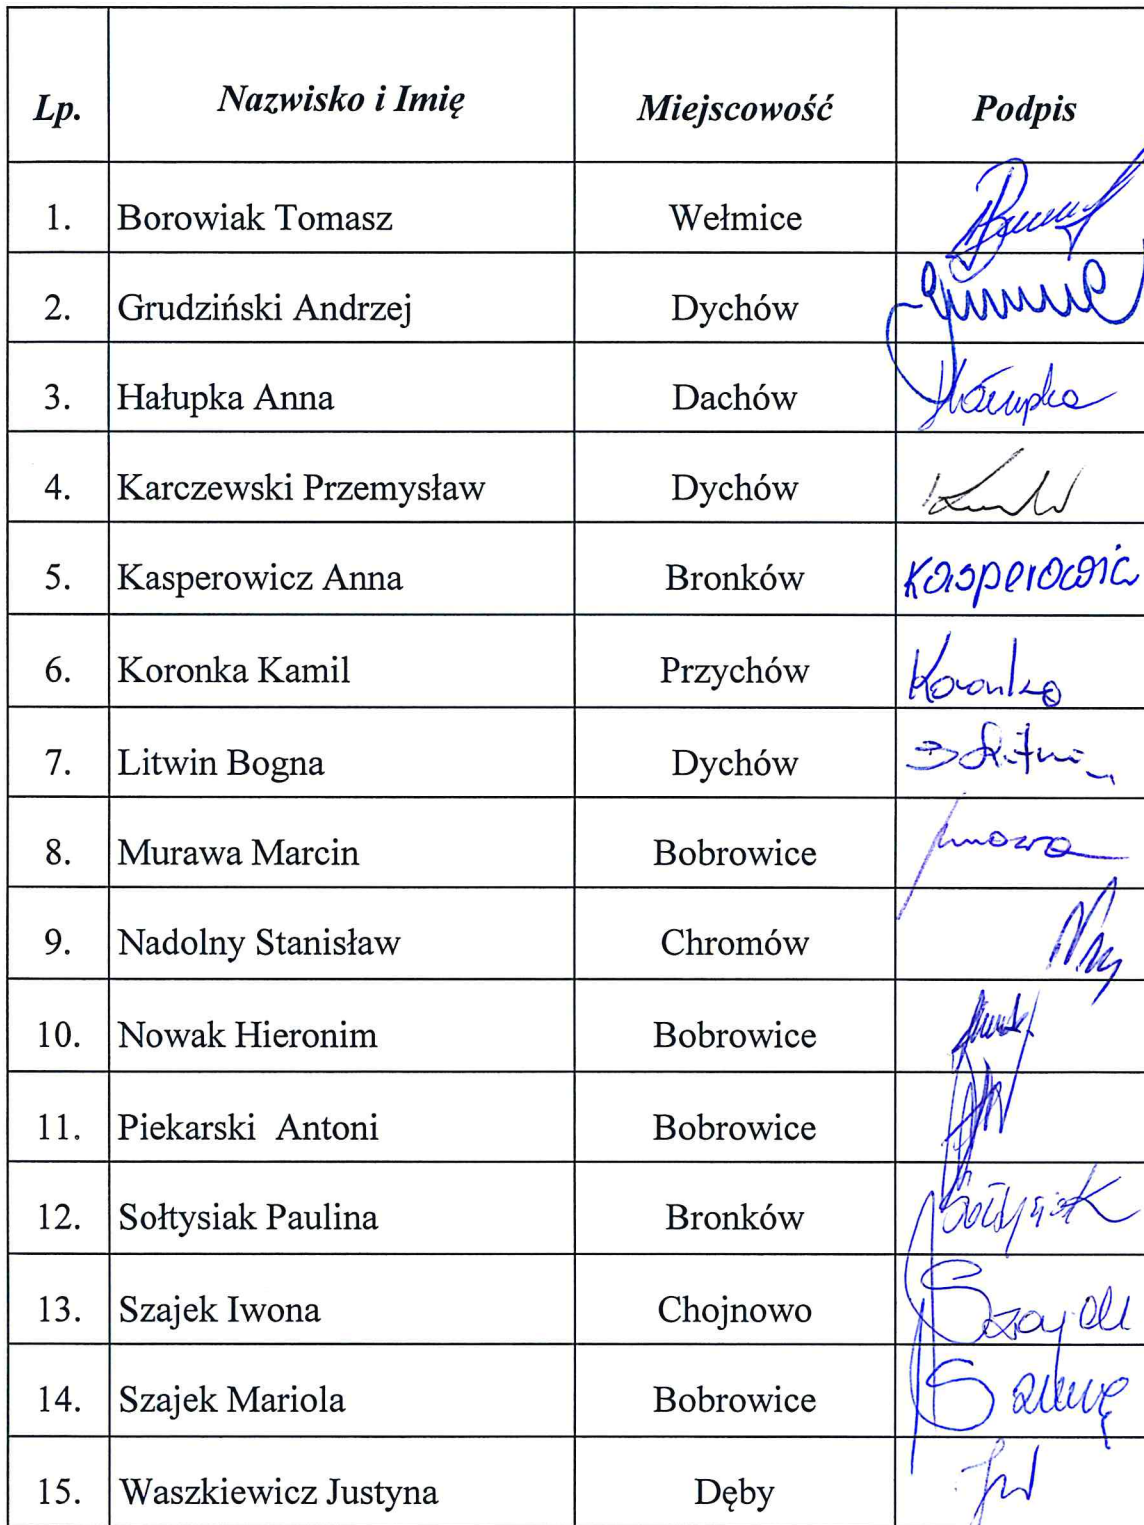 Lp. Nazwisko i Imię Miejscowość Podpis
1. Borowiak Tomasz Wełmice
2. Grudziński Andrzej Dychów
3. Hałupka Anna Dachów Hałupka
4. Karczewski Przemysław Dychów
5. Kasperowicz Anna Bronków Kasperowicz
6. Koronka Kamil Przychów Koronka
7. Litwin Bogna Dychów
8. Murawa Marcin Bobrowice
9. Nadolny Stanisław Chromów
10. Nowak Hieronim Bobrowice
11. Piekarski Antoni Bobrowice
12. Sołtysiak Paulina Bronków Sołtysiak
13. Szajek Iwona Chojnowo Szajek
14. Szajek Mariola Bobrowice
15. Waszkiewicz Justyna Dęby